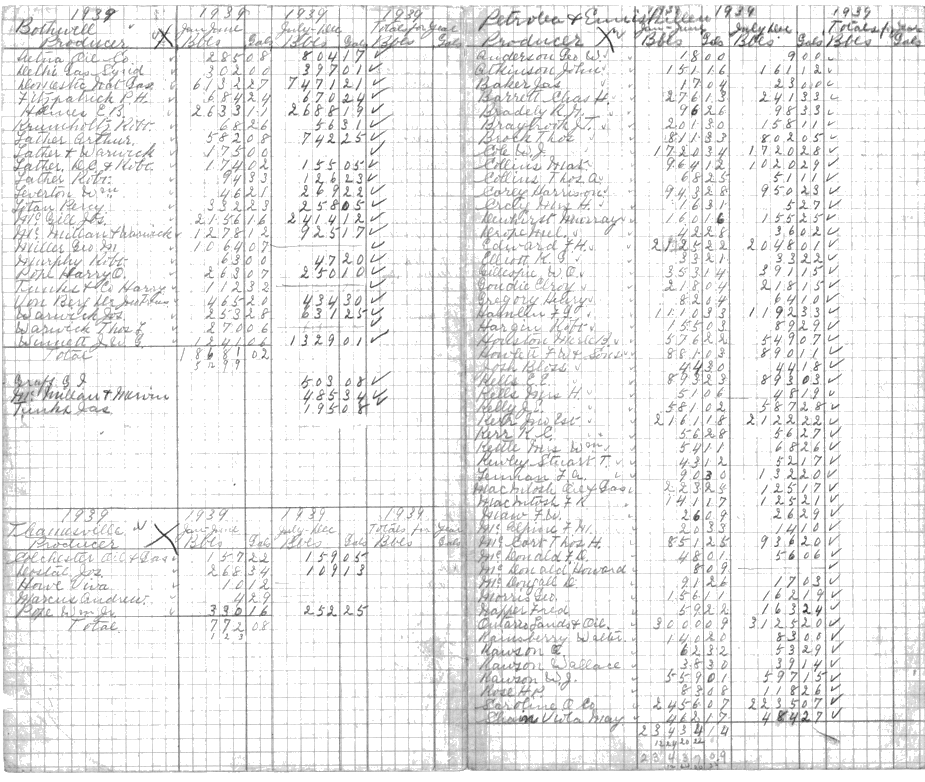 1939 1939 1939 1939
Bothwell Jan-June July-Dec Totals for Year
Producer Bbls Gals Bbls Gals Bbls Gals
Aetna Oil Co. 285 08 804 17
302 00 397 01
Domestic Nat Gas 6132 27 7471 21
Fitzpatrick P.H. 684 24 670 24
2633 17 2688 19
Krumholtz Robt. 68 26 56 31
Lather Arthur 582 08 742 25
Lather & Warwick 175 00
Lather, D.C. & Robt. 174 02 155 05
Lather Robt. 94 33 126 23
Leverton Wm 46 21 269 22
Percy 332 23 258 05
McGill Jos. 2156 16 2414 12
McMillan & Warwick 1278 12 925 17
Miller Geo M. 1064 07
Murphy Robt 63 00 47 20
Pope Harry O. 263 07 250 10
Tunks & Co Harry 112 32
465 20 434 30
Warwick Jos. 253 28 631 25
Warwick Thos L. 270 06
1241 06 1329 01
Total 18681 02
503 08
McMillan & Marvin 485 34
Tunks Jas 195 08
1939 1939 1939 1939
Thamesville Jan-June July-Dec Totals for Year
Producer Bbls Gals Bbls Gals Bbls Gals
Colchester Oil & Gas 157 22 159 05
Jos. 268 34 109 13
Howe Viva 10 12
Marcus Andrew 4 29
Pope Wm Jr 330 16 252 25
Total 772 08
Petrolea & Enniskillen 1939 1939 1939
Producer Jan-June July-Dec Totals for Year
Bbls Gals Bbls Gals Bbls Gals
Anderson Geo W. 18 00 9 00
Atkinson John 151 16 161 12
Baker Jas 17 04 23 00
Barrett Chas H. 276 13 241 33
Bradely R.J. 96 26 98 33
Braybrook J.T. 201 30 158 11
Brock Thos 811 33 802 05
Cole W.J. 1720 34 1720 28
Collins Mat. 964 12 1020 29
Collins Thos A. 68 25 51 11
Corey Harrison 943 28 950 23
Mrs H. 16 31 5 27
Dewhirst Murray 160 16 155 25
42 28 36 02
Edward F.H. 2125 22 2048 01
Elliott K.G. 33 21 33 22
Gillespie W.C. 353 14 391 15
Goudie Elroy 218 04 218 15
Gregory Henry 82 04 64 10
Hamilton F.G. 1110 33 1192 33
Hargin Robt 155 03 89 29
576 22 549 07
Howlett Fr & Sons 881 03 890 11
Josh Bloss 44 30 44 18
Kells E.E. 893 23 893 03
Kells Mrs H. 51 06 48 19
Kelly J. 581 02 587 28
Kerr Jno Est 2161 18 2122 22
Kerr K.C. 56 28 56 27
Kettle Mrs Wm 54 11 68 26
Stuart T. 43 12 52 17
90 30 132 20
MacIntosh Oil & Gas 223 25 125 17
MacIntosh F.R. 141 17 125 21
26 09 26 29
McAlpine F.M. 20 33 14 10
McCort Thos H. 851 25 936 20
McDonald F.D. 48 01 56 06
McDonald Howard 8 09
McDougall D. 91 26 17 03
Morris Geo. 156 11 162 19
Napper Fred 59 22 163 24
Ontario Lands & Oil 3000 09 3125 20
Ramsberry Walter 140 20 83 00
Rawson O. 62 32 53 29
Rawson Wallace 38 30 39 14
Rawson W.J. 559 01 597 15
Rose H.P. 83 08 118 26
Saroline O Co 2456 07 2235 07
Shaw Viola May 462 17 484 27
23434 14